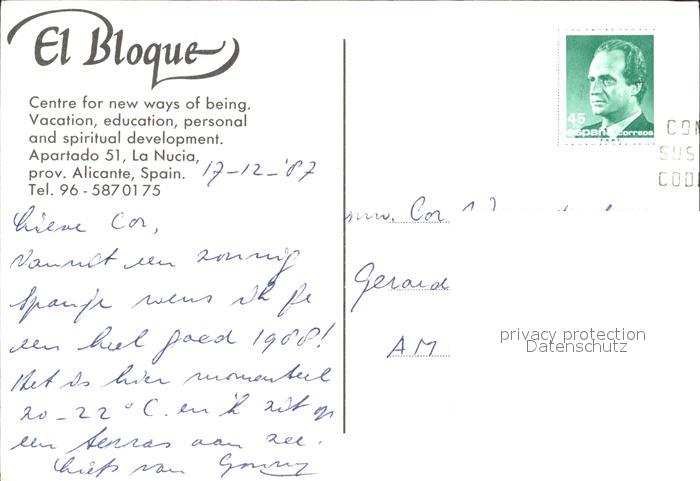 El Bloque
Centre for new ways of being.
Vacation, education, personal
and spiritual development.
Apartado 51, La Nucia,
prov. Alicante, Spain.
Tel. 96 - 5870175
17-12-'87
Lieve Cor,
Vanuit een zonnig
Spanje wens ik je
een heel goed 1988!
Het is hier momenteel
20-22°C. en ik zit op
een terras aan zee.
Liefs van
45
españa correos
CON
SUS
CODI
mw. Cor
Gerard
AM
privacy protection
Datenschutz